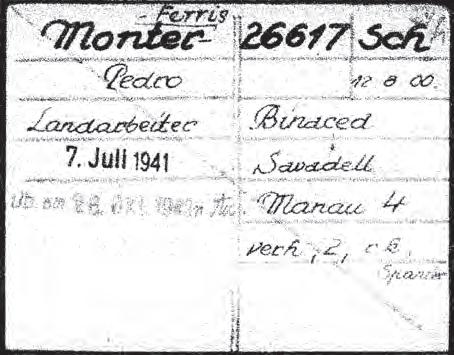 - Ferris
Monter 26617 Sch
Pedro 12 8 00.
Landarbeiter Binaced
7. Juli 1941 Savadell
am Manau 4
verh, 2, r k.
Spanier